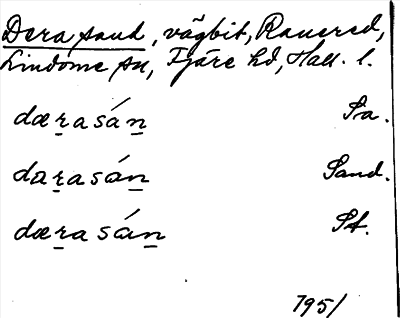 Dera sand, vägbit, Ranered,
Lindome sn, Fjäre hd, Hall. l.
dæṟasáṉ Sa.
daṟasáṉ Sand.
dæṟasáṉ St.
1951